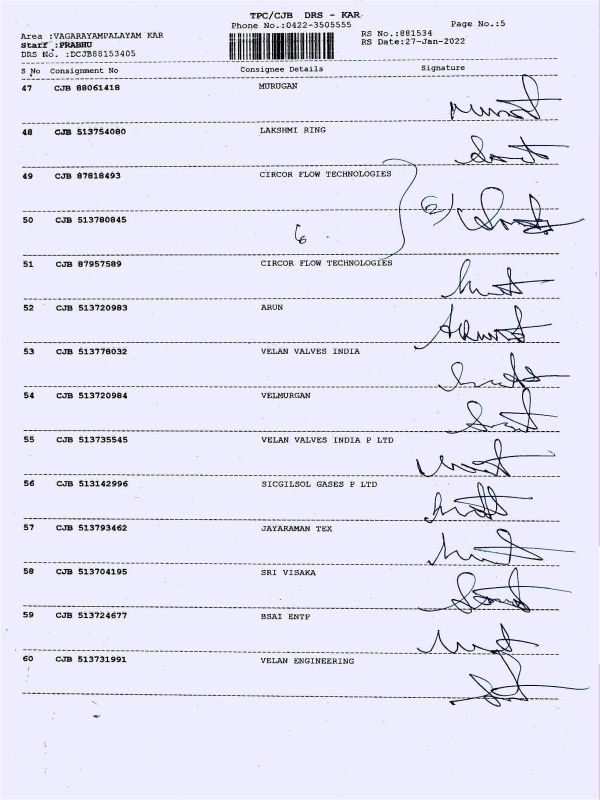 TPC/CJB DRS - KAR
Phone No.:0422-3505555 Page No.:5
Area :VAGARAYAMPALAYAM KAR RS No.:881534
Staff :PRABHU RS Date:27-Jan-2022
DRS No. :DCJB88153405
S No Consignment No Consignee Details Signature
47 CJB 88061418 MURUGAN
48 CJB 513754080 LAKSHMI RING
49 CJB 87818493 CIRCOR FLOW TECHNOLOGIES
50 CJB 513780845
51 CJB 87957589 CIRCOR FLOW TECHNOLOGIES
52 CJB 513720983 ARUN
53 CJB 513778032 VELAN VALVES INDIA
54 CJB 513720984 VELMURGAN
55 CJB 513735545 VELAN VALVES INDIA P LTD
56 CJB 513142996 SICGILSOL GASES P LTD
57 CJB 513793462 JAYARAMAN TEX
58 CJB 513704195 SRI VISAKA
59 CJB 513724677 BSAI ENTP
60 CJB 513731991 VELAN ENGINEERING